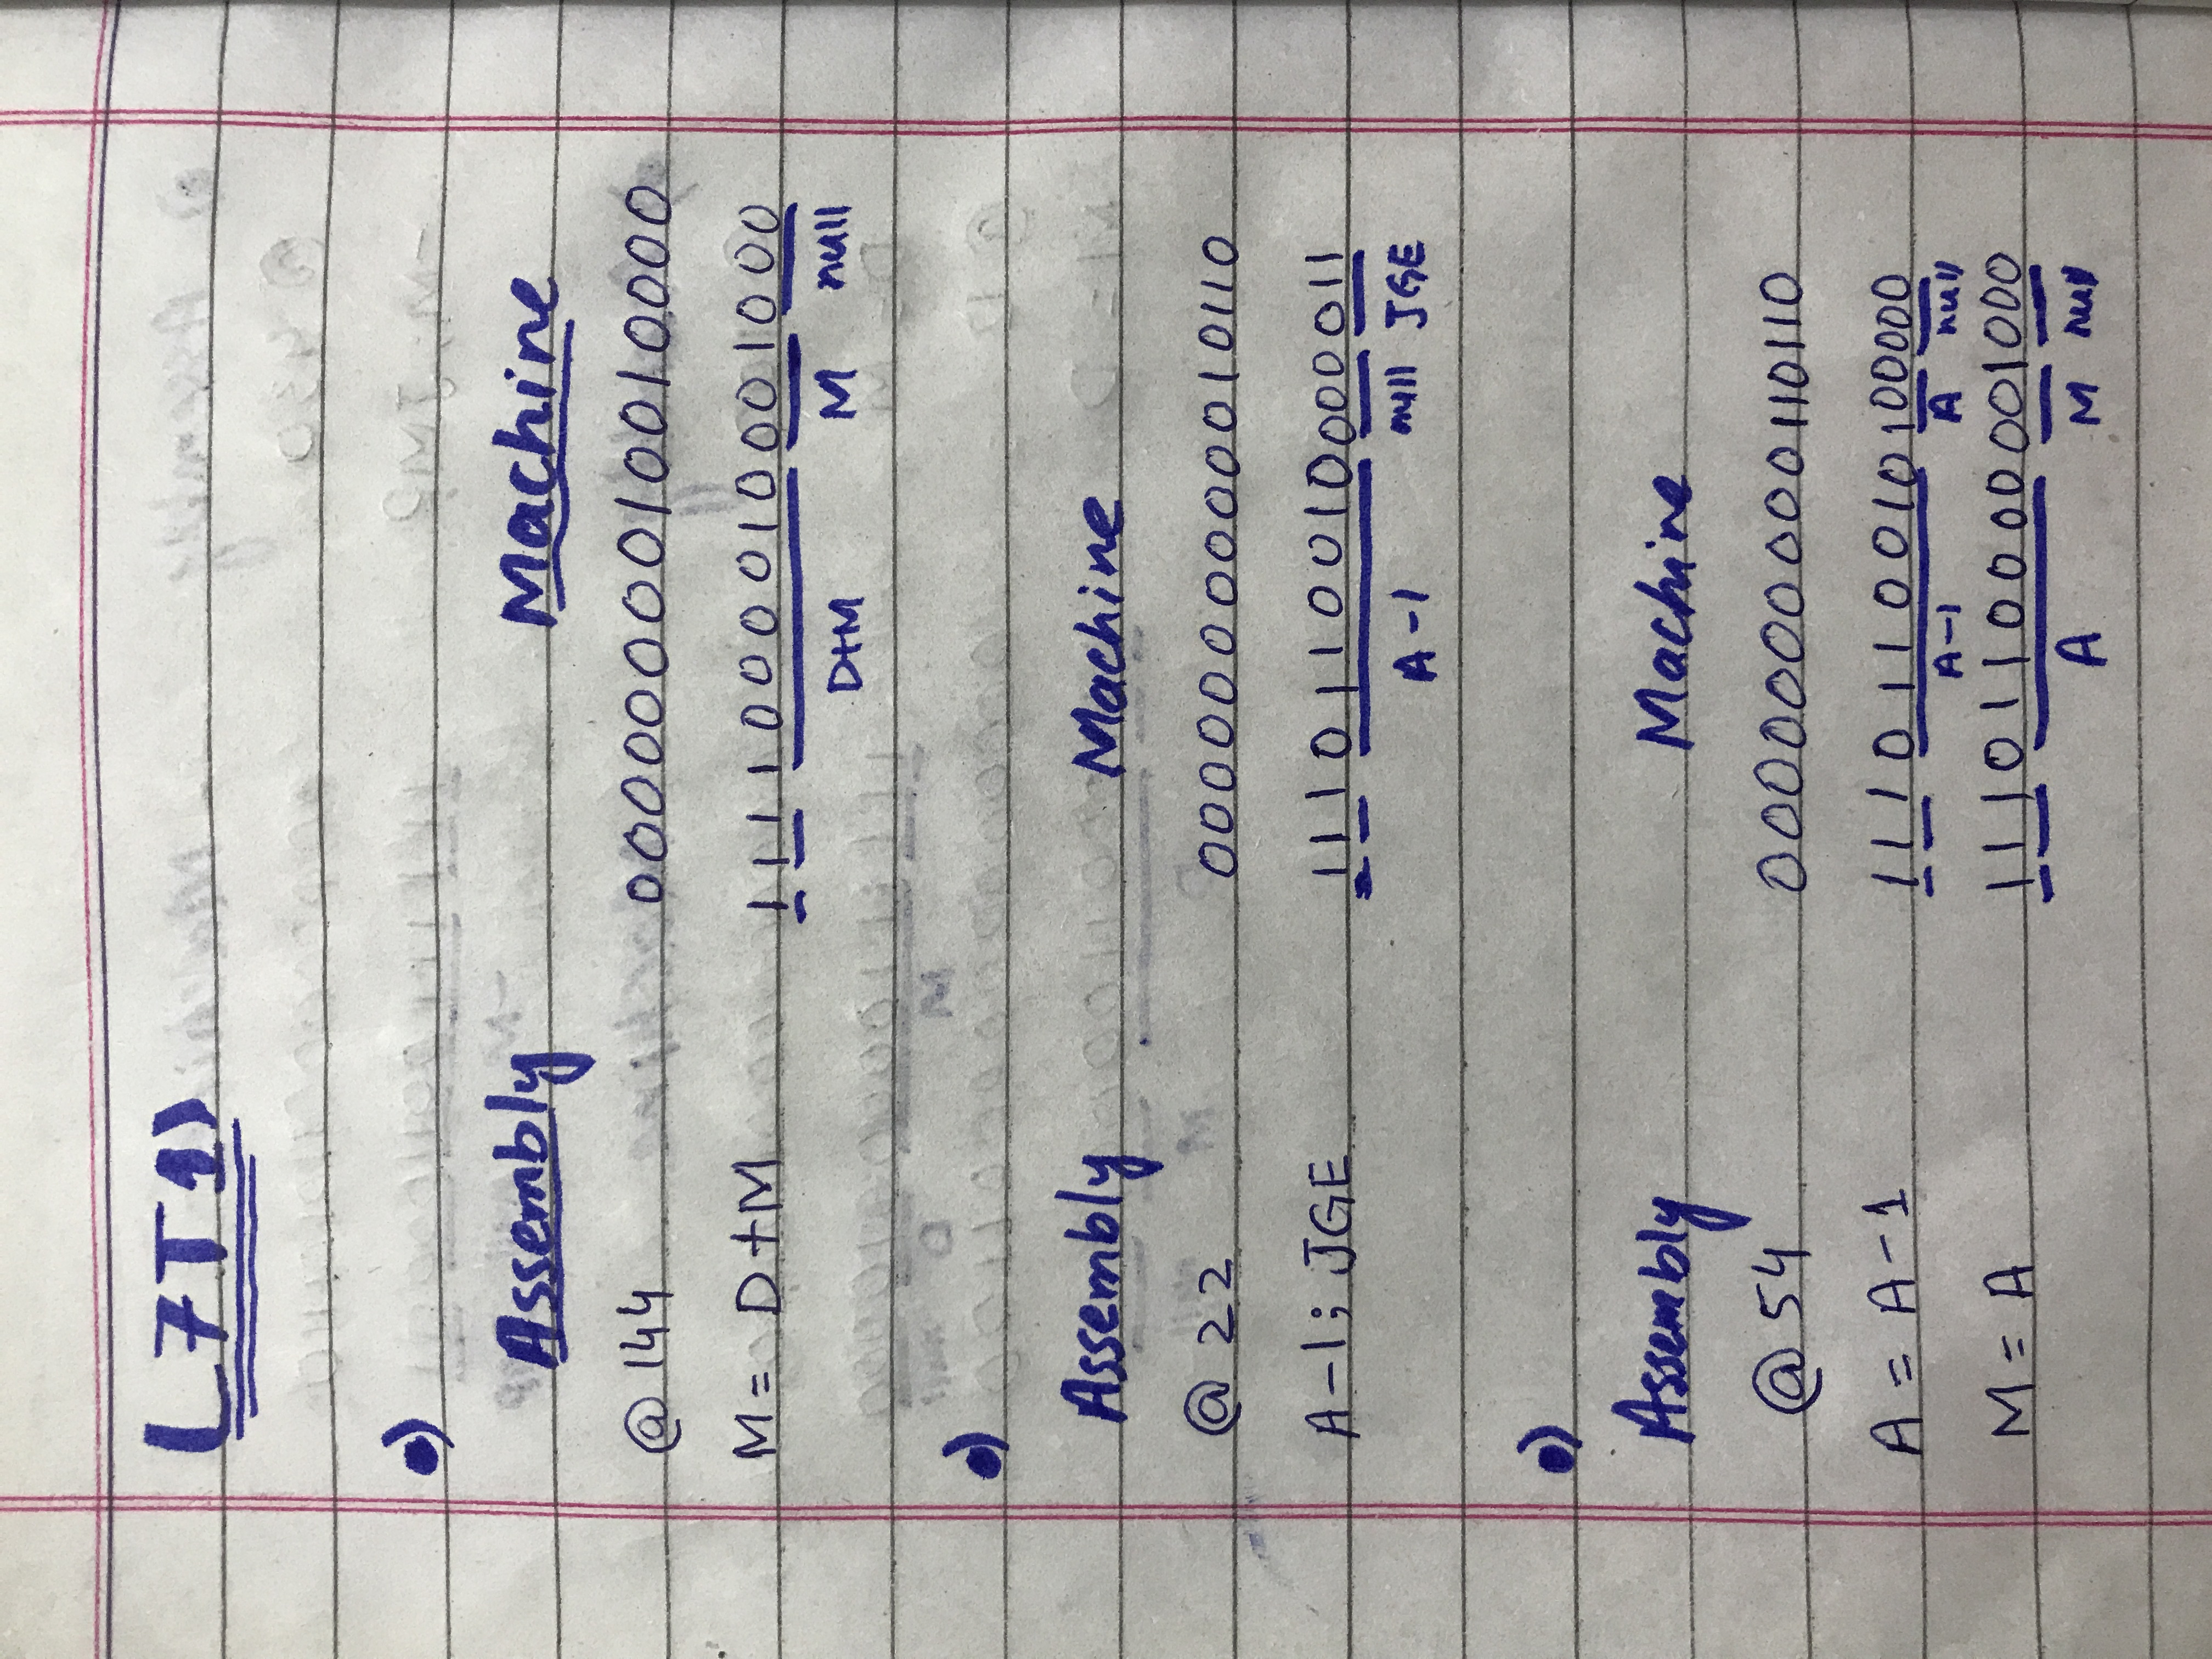 L7T1)
•)
Assembly Machine
@ 144 0000000010010000
M = D+M 1111000010001000
D+M M null
•)
Assembly Machine
@ 22 0000000000010110
A-1; JGE 1110110010000011
A-1 null JGE
•)
Assembly Machine
@ 54 0000000000110110
A = A-1 1110110010100000
A-1 A null
M = A 1110110000001000
A M null